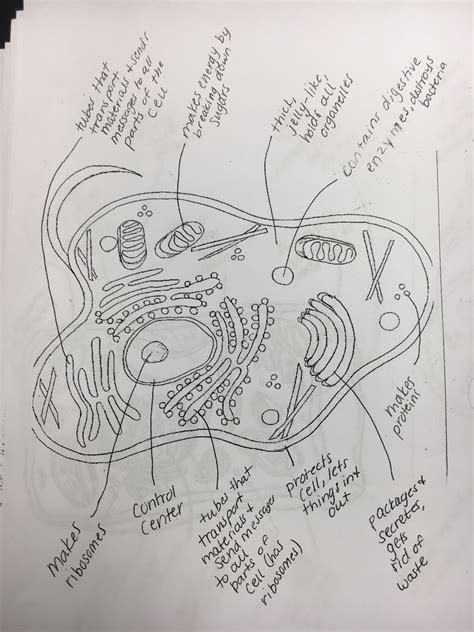 tubes that
transport
materials & sends
messages to all
parts of the
cell
makes energy by
breaking down
sugars
thick,
jelly-like,
holds all
organelles
contains digestive
enzymes, destroys
bacteria
makes
protein
makes
ribosomes
control
center
tubes that
transport
materials &
send messages
to all
parts of
cell (has
ribosomes)
protects
cell, lets
things in &
out
packages &
secretes,
gets
rid of
waste